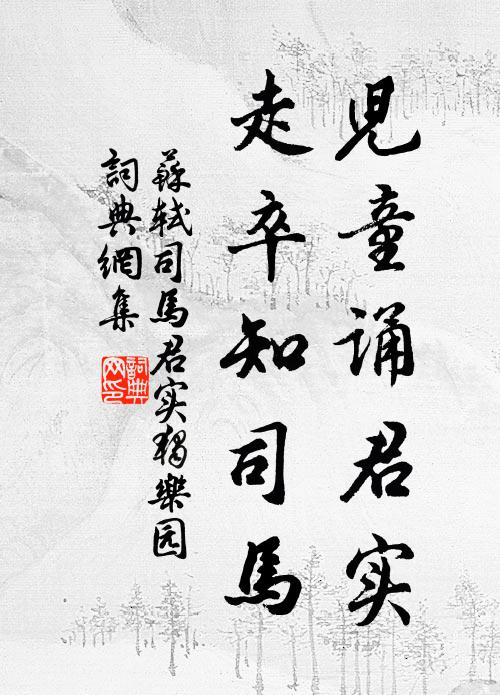 儿童诵君实
走卒知司馬
蘇軾司馬君实独樂园
詞典網集
詞典网印